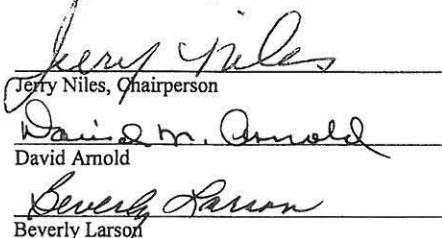 Jerry Niles
Jerry Niles, Chairperson
David M. Arnold
David Arnold
Beverly Larson
Beverly Larson